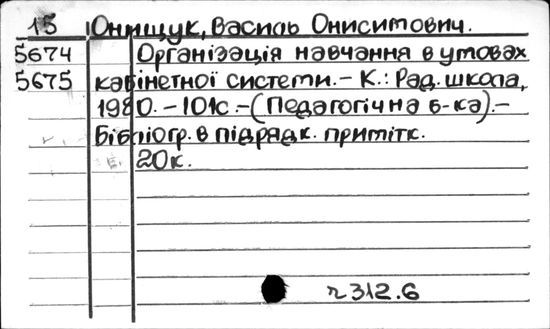 15 Онищук, Василь Онисимович.
5674 Організація навчання в умовах
5675 кабінетної системи. – К.: Рад. школа,
1980. – 101с. – (Педагогічна б-ка). –
Бібліогр. в підрядк. примітк.
20к.
ч312.6